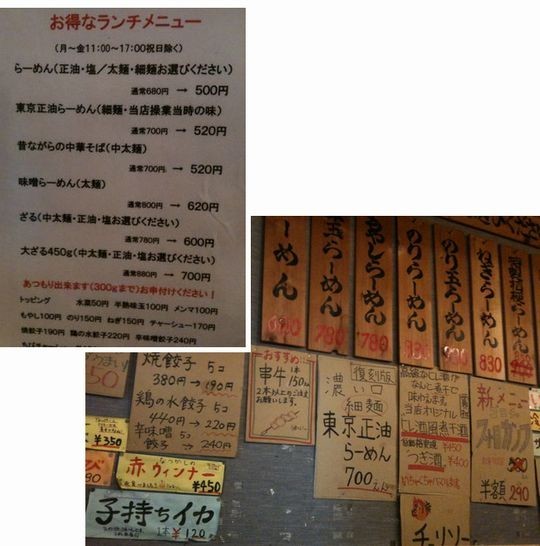 お得なランチメニュー
(月～金11:00～17:00祝日除く)
らーめん(正油・塩／太麺・細麺お選びください)
通常680円 → 500円
東京正油らーめん(細麺・当店操業当時の味)
通常700円 → 520円
昔ながらの中華そば(中太麺)
通常700円 → 520円
味噌らーめん(太麺)
通常800円 → 620円
ざる(中太麺・正油・塩お選びください)
通常780円 → 600円
大ざる450g(中太麺・正油・塩お選びください)
通常880円 → 700円
あつもり出来ます(300gまで)お申付けください！
トッピング 水菜50円 半熟味玉100円 メンマ100円
もやし100円 のり150円 ねぎ150円 チャーシュー170円
焼餃子190円 鶏の水餃子220円 辛味噌餃子240円
らーめん
680
玉らーめん
780
もやしらーめん
780
のりらーめん
のり玉らーめん
ねぎらーめん
830
らーめん
焼餃子 5コ
380円→190円
鶏の水餃子 5コ
440円→220円
辛味噌 5コ
餃子 → 240円
おすすめ
串牛 1本150円
2本以上のご注文
お願いします。
復刻版
濃い口
細麺
東京正油
らーめん
700
当店オリジナル
にし酒風煮干酒
¥450
つぎ酒 ¥400
新メニュー
半額 290
50
¥350
び
¥190
なつかしの
赤ウィンナー
¥450
子持ちイカ
1本 ¥120
チリソー